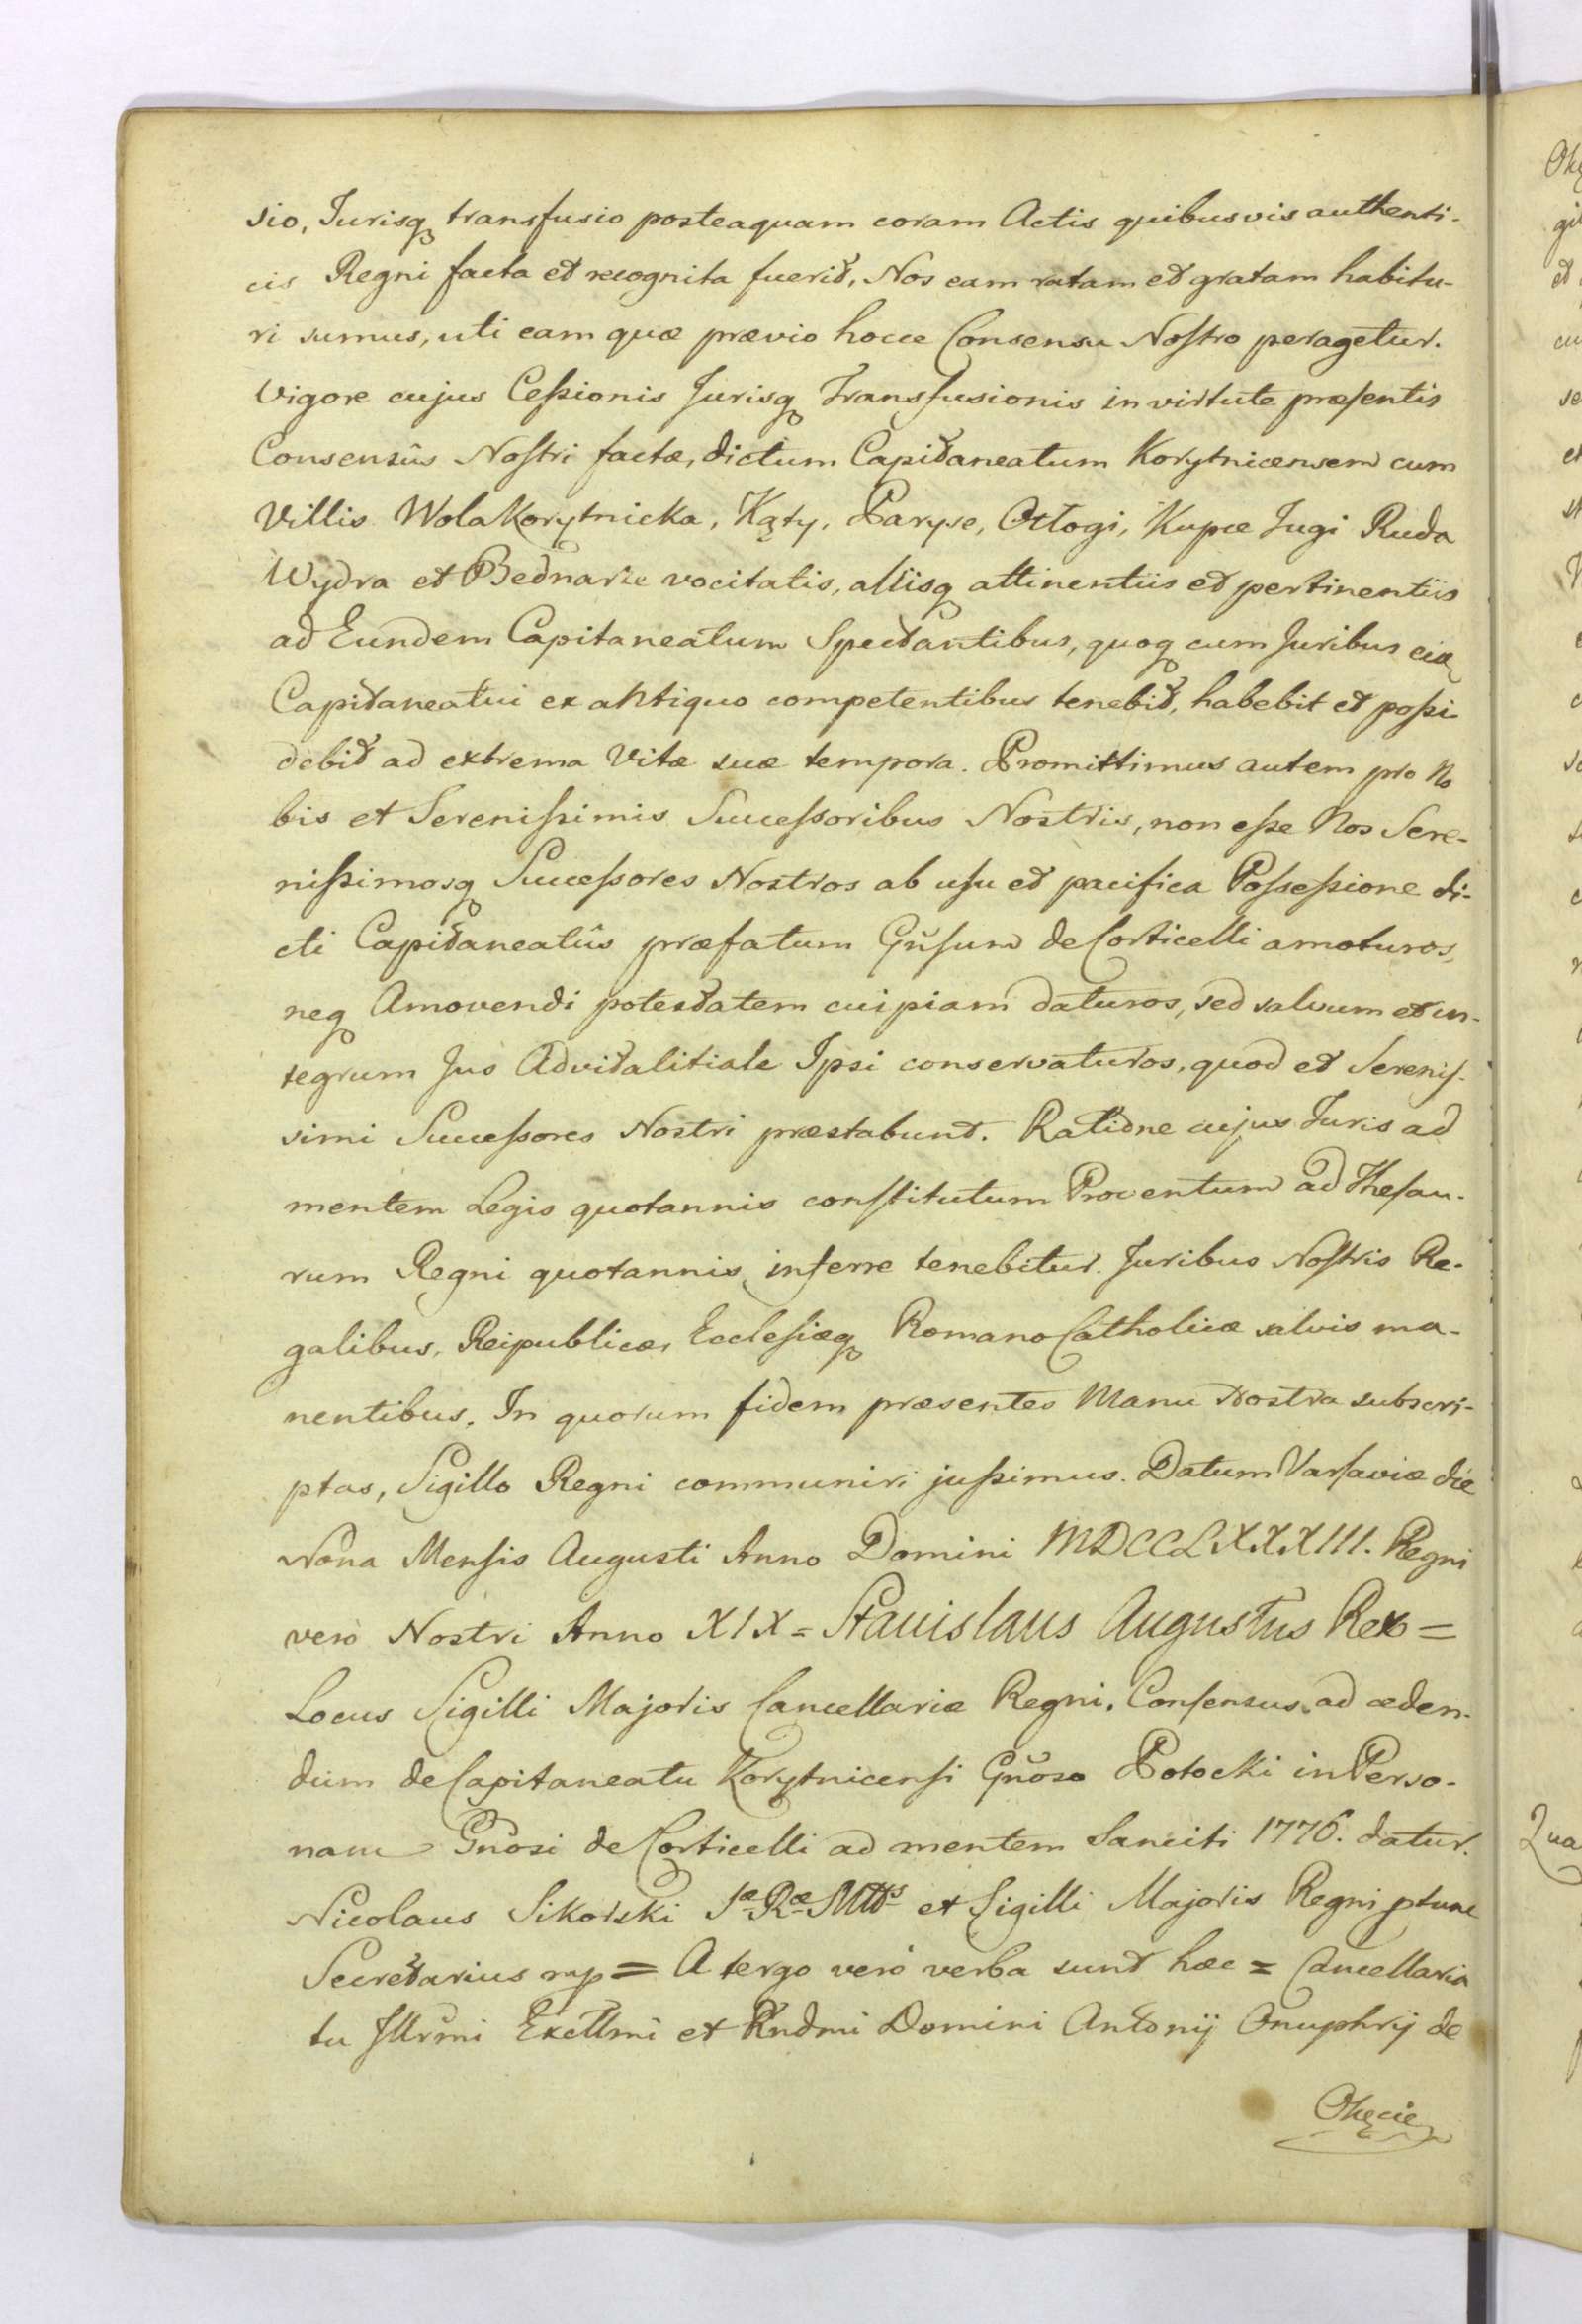 sio, Jurisq transfusio posteaquam coram Actis quibusvis authenti-
cis Regni facta et recognita fuerit, Nos eam ratam et gratam habitu-
ri sumus, uti eam quæ prævio hocce Consensu Nostro peragetur.
Vigore cujus Cessionis Jurisq Transfusionis in virtute præsentis
Consensûs Nostri factæ, dictum Capitaneatum Korytnicensem cum
Villis Wola Korytnicka, Kąty, Paryse, Otłogi, Kupce Jugi Ruda
Wydra et Bednarze vocitatis, aliisq attinentiis et pertinentiis
ad Eundem Capitaneatum Spectantibus, quoq cum Juribus eid
Capitaneatui ex antiquo competentibus tenebit, habebit et possi-
debit ad extrema Vitæ suæ tempora. Promittimus autem pro No
bis et Serenissimis Successoribus Nostris, non esse Nos Sere-
nissimosq Successores Nostros ab usu et pacifica Possessione di-
cti Capitaneatûs præfatum Gñsum de Corticelli amoturos,
neq Amovendi potestatem cuipiam daturos, sed salvum et in-
tegrum Jus Advitalitiale Ipsi conservaturos, quod et Serenis-
simi Successores Nostri præstabunt. Ratione cujus Juris ad
mentem Legis quotannis constitutum Proventum ad Thesau-
rum Regni quotannis inferre tenebitur. Juribus Nostris Re-
galibus, Reipublicæ, Ecclesiæq Romano Catholicæ salvis ma-
nentibus. In quorum fidem præsentes Manu Nostra subscri-
ptas, Sigillo Regni communiri jussimus. Datum Varsaviæ die
Nona Mensis Augusti Anno Domini MDCCLXXXIII. Regni
vero Nostri Anno XIX = Stanislaus Augustus Rex =
Locus Sigilli Majoris Cancellariæ Regni. Consensus ad ceden-
dum de Capitaneatu Korytnicensi Gñoso Potocki in Perso-
nam Gñosi de Corticelli ad mentem Sanciti 1776. datur.
Nicolaus Sikorski Sæ Ræ Mttis et Sigilli Majoris Regni ptunc
Secretarius mp = A tergo vero verba sunt hæc = Cancellaria
tu Jllrmi Excllmi et Rndmi Domini Antonij Onuphrij de
Okęcie